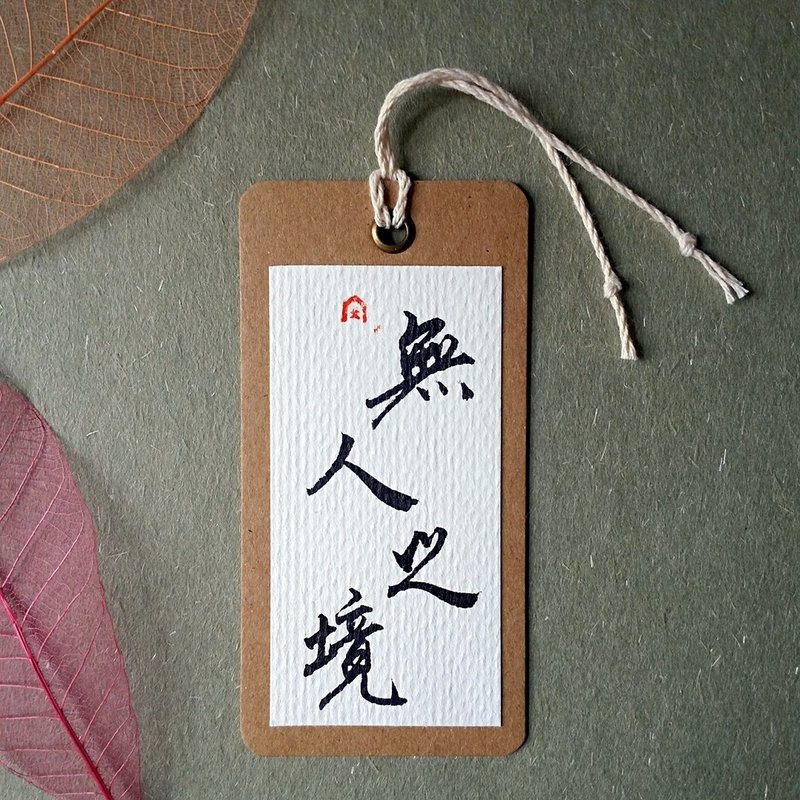 無人之境